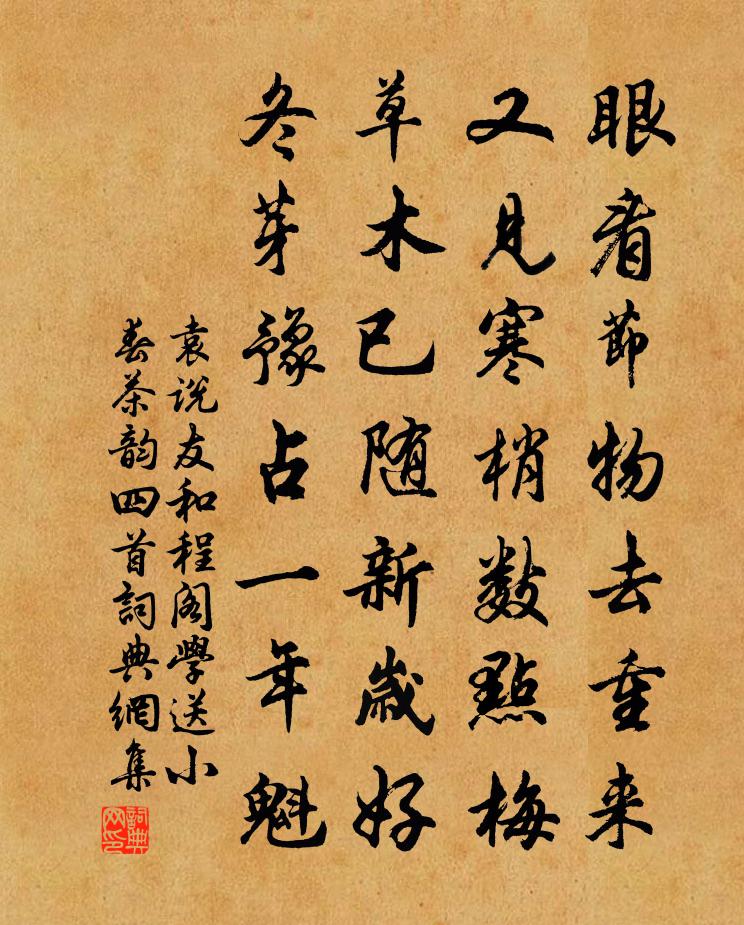 眼看節物去重来
又見寒梢數點梅
草木已随新歲好
冬芽豫占一年魁
袁说友和程阁學送小
春茶韵四首詞典網集
詞典网印